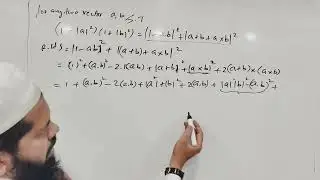 for any two vector a, b
(1+|a|²)(1+|b|²) = |1-ab|² + |a+b+a×b|²
R.H.S = |1-ab|² + |(a+b)+a×b|²
= (1)² + (a.b)² - 2.1(a.b) + |a+b|² + |a×b|² + 2(a+b)×(a×b)
= 1 + (a.b)² - 2(a.b) + |a|² + |b|² + 2(a.b) + |a|²|b|² - (a.b)² +